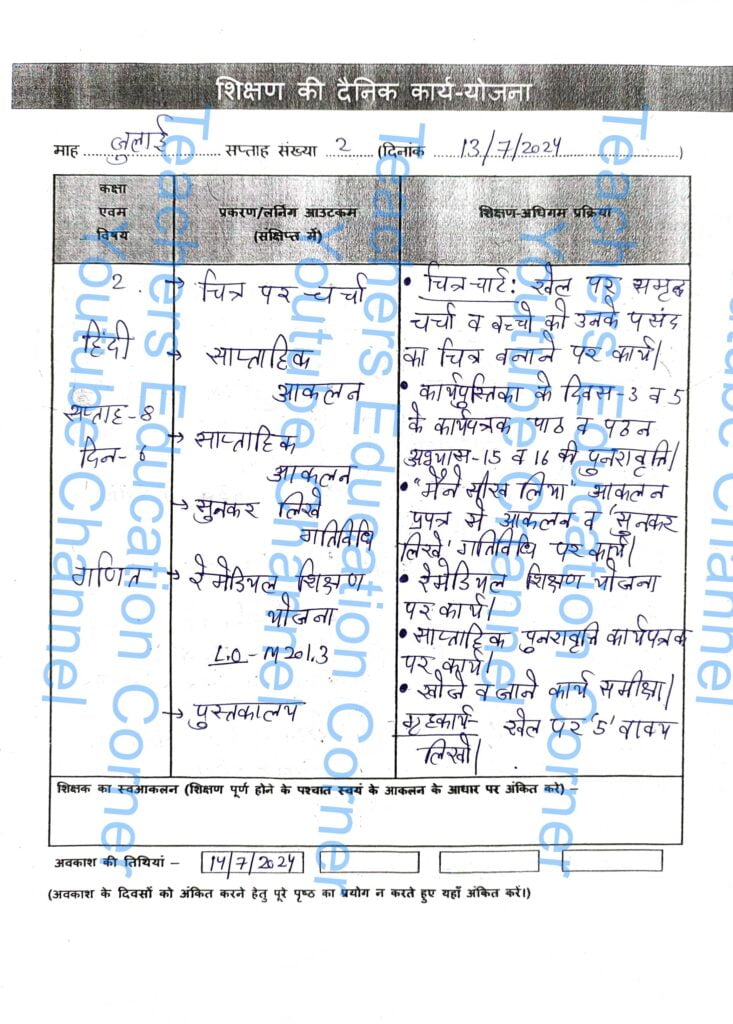 शिक्षण की दैनिक कार्य-योजना
माह जुलाई सप्ताह संख्या 2 (दिनांक 13/7/2024)
कक्षा
एवम
विषय
प्रकरण/लर्निंग आउटकम
(संक्षिप्त में)
शिक्षण-अधिगम प्रक्रिया
2.
हिंदी
सप्ताह-8
दिन-6
→ चित्र पर चर्चा
→ साप्ताहिक
आकलन
→ साप्ताहिक
आकलन
→ सुनकर लिखे
गतिविधि
• चित्र-चार्ट: खेल पर समृद्ध
चर्चा व बच्चो को उनके पसंद
का चित्र बनाने पर कार्य।
• कार्यपुस्तिका के दिवस-3 व 5
के कार्यपत्रक पाठ व पठन
अभ्यास-15 व 16 की पुनरावृत्ति।
• "मैंने सीख लिया" आकलन
प्रपत्र से आकलन व 'सुनकर
लिखे' गतिविधि पर कार्य।
गणित
→ रेमेडियल शिक्षण
योजना
L.O - M201.3
→ पुस्तकालय
• रेमेडियल शिक्षण योजना
पर कार्य।
• साप्ताहिक पुनरावृत्ति कार्यपत्रक
पर कार्य।
• खोजे व जाने कार्य समीक्षा।
गृहकार्य- खेल पर '5' वाक्य
लिखो।
शिक्षक का स्वआकलन (शिक्षण पूर्ण होने के पश्चात स्वयं के आकलन के आधार पर अंकित करे) –
अवकाश की तिथियां – 14/7/2024
(अवकाश के दिवसों को अंकित करने हेतु पूरे पृष्ठ का प्रयोग न करते हुए यहाँ अंकित करें।)
Teachers Education Corner
Youtube Channel
Teachers Education Corner
Youtube Channel
Teachers Education Corner
Youtube Channel